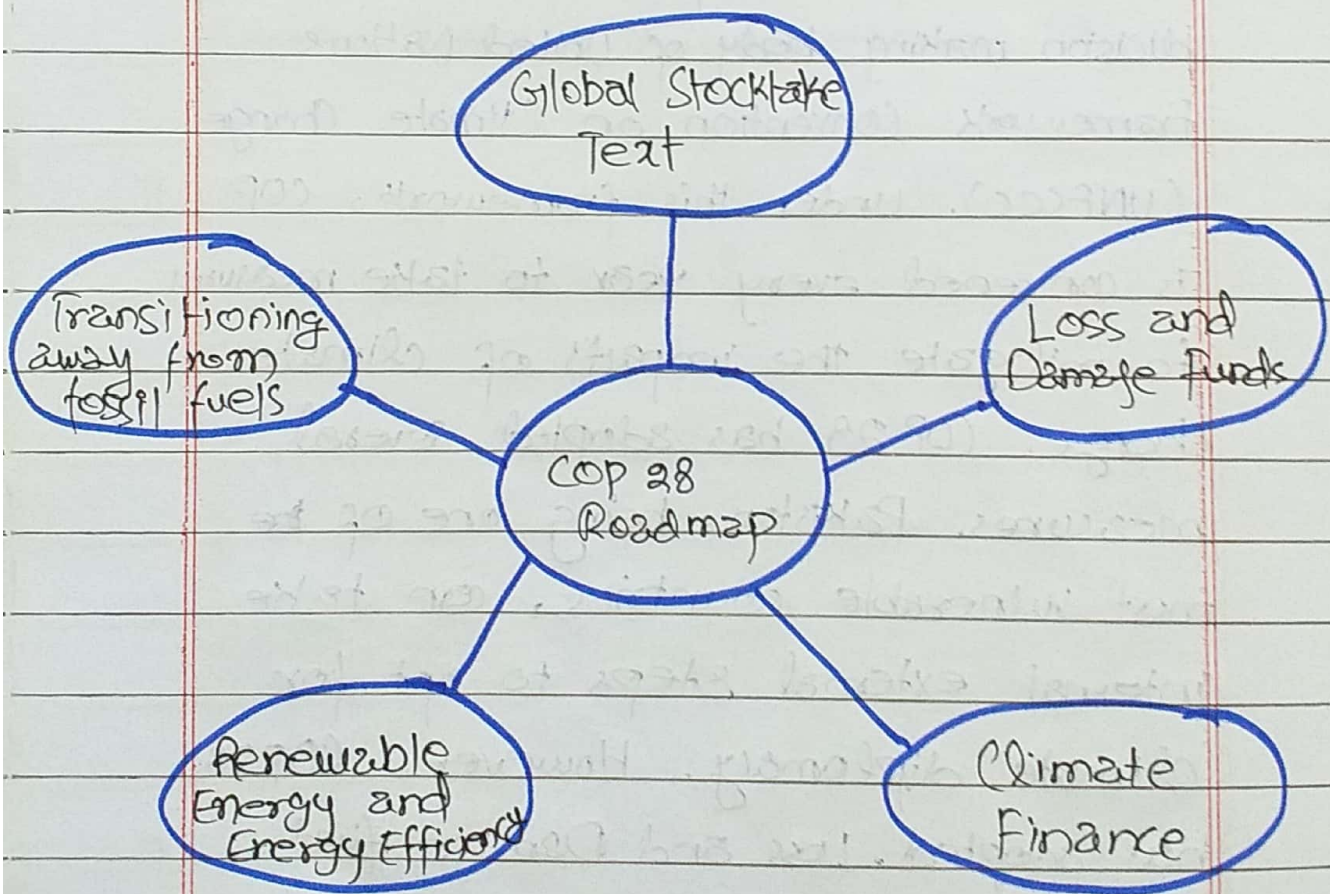 Global Stocktake
Text
Transitioning
away from
fossil fuels
Loss and
Damage Funds
COP 28
Roadmap
Renewable
Energy and
Energy Efficiency
Climate
Finance